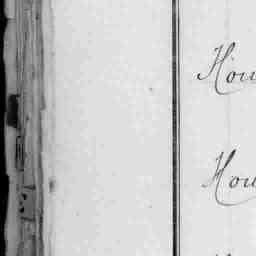 Hou
Hou